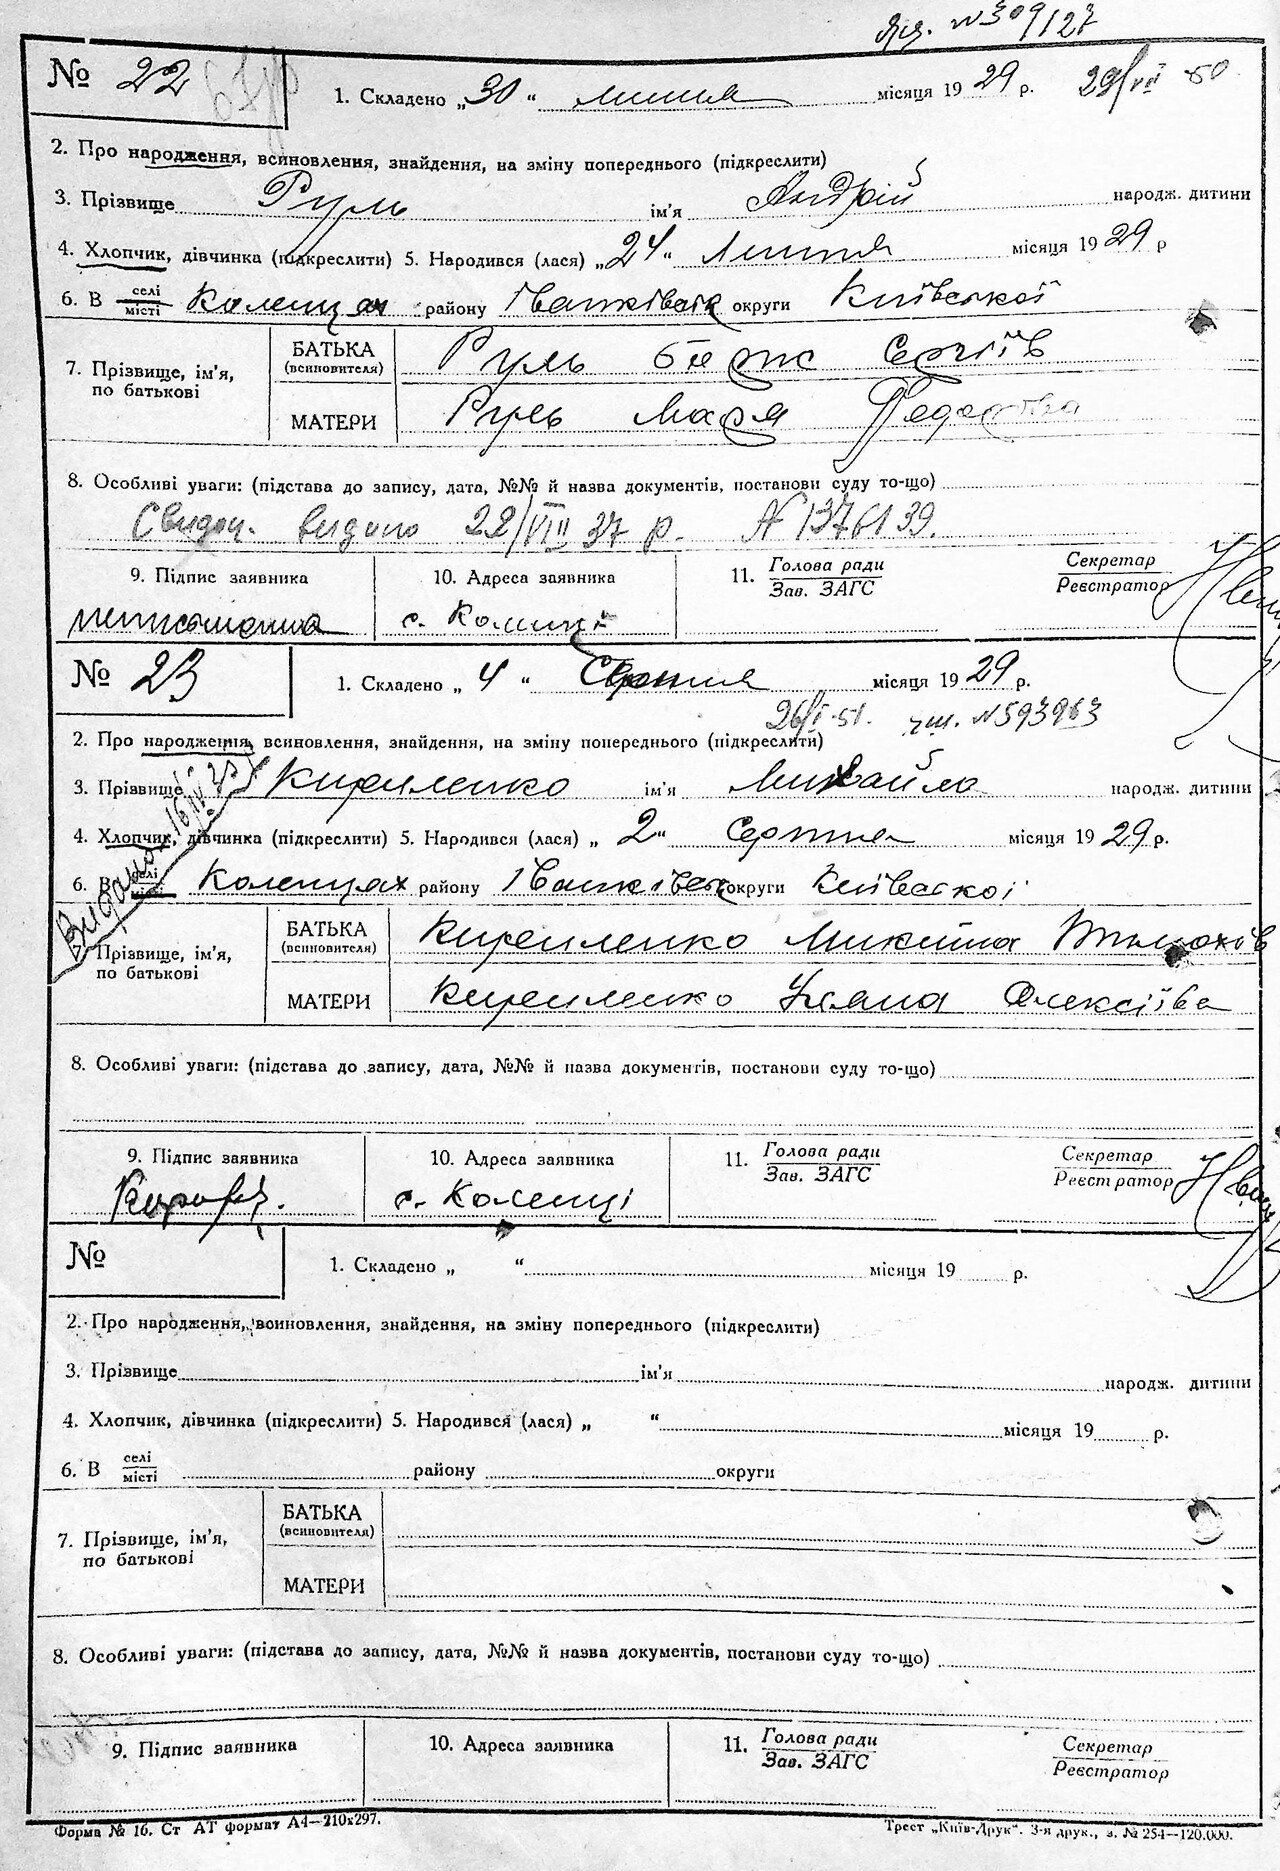 № 309127
№ 22 1. Складено „30“ липня місяця 1929 р. 29/VII 50
2. Про народження, всиновлення, знайдення, на зміну попереднього (підкреслити)
3. Прізвище Руль ім'я Андрій народж. дитини
4. Хлопчик, дівчинка (підкреслити) 5. Народився (лася) „24“ Липня місяця 1929 р
6. В селі/місті Коленцях району Іванківськ округи Київської
7. Прізвище, ім'я, по батькові
БАТЬКА (всиновителя) Руль Сергіїв
МАТЕРИ Руль Марія Федорівна
8. Особливі уваги: (підстава до запису, дата, №№ й назва документів, постанови суду то-що)
Свидоц. видано 22/VIII 37 р. № 1376139.
9. Підпис заявника 10. Адреса заявника 11. Голова ради/Зав. ЗАГС Секретар/Реєстратор
неписьменна с. Коленці
№ 23 1. Складено „4“ Серпня місяця 1929 р.
26/I-51. № 593963
2. Про народження, всиновлення, знайдення, на зміну попереднього (підкреслити)
3. Прізвище Кириленко ім'я Михайло народж. дитини
4. Хлопчик, дівчинка (підкреслити) 5. Народився (лася) „2“ Серпня місяця 1929 р.
6. В селі/місті Коленцях району Іванківськ округи Київської
Видано 16/IV
7. Прізвище, ім'я, по батькові
БАТЬКА (всиновителя) Кириленко Микита
МАТЕРИ Кириленко Уляна Олексіївa
8. Особливі уваги: (підстава до запису, дата, №№ й назва документів, постанови суду то-що)
9. Підпис заявника 10. Адреса заявника 11. Голова ради/Зав. ЗАГС Секретар/Реєстратор
с. Коленці
№ 1. Складено „ “ місяця 19 р.
2. Про народження, всиновлення, знайдення, на зміну попереднього (підкреслити)
3. Прізвище ім'я народж. дитини
4. Хлопчик, дівчинка (підкреслити) 5. Народився (лася) „ “ місяця 19 р.
6. В селі/місті району округи
7. Прізвище, ім'я, по батькові
БАТЬКА (всиновителя)
МАТЕРИ
8. Особливі уваги: (підстава до запису, дата, №№ й назва документів, постанови суду то-що)
9. Підпис заявника 10. Адреса заявника 11. Голова ради/Зав. ЗАГС Секретар/Реєстратор
Форма № 16. Ст АТ формат А4—210х297. Трест „Київ-Друк“. 3-я друк., з. № 254—120.000.